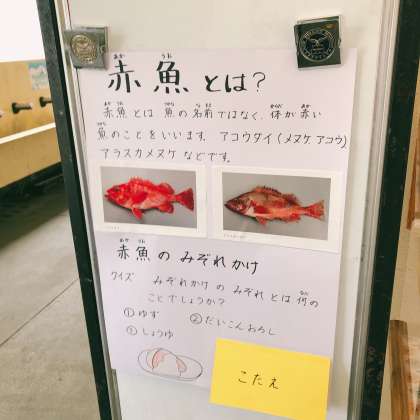 赤魚とは?
赤魚とは魚の名前ではなく、体が赤い
魚のことをいいます。アコウダイ(メヌケ アコウ)
アラスカメヌケなどです。
赤魚のみぞれかけ
クイズ みぞれかけのみぞれとは何の
ことでしょうか?
①ゆず ②だいこんおろし
③しょうゆ
こたえ